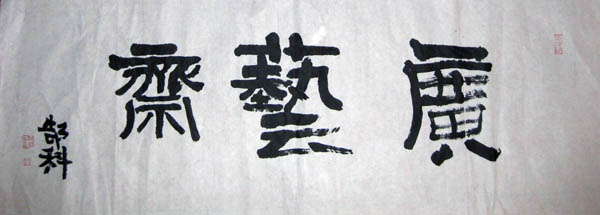 廣藝齋
郜科